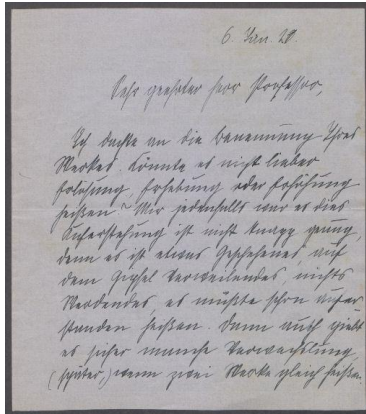 6. Jan. 20.
Sehr geehrter Herr Professor,
Ich dachte an die Benennung Ihres
Werkes. Könnte es nicht lieber
Erlösung, Erhebung oder Erhöhung
heißen? Mir jedenfalls war es dies
Auferstehung ist nicht knapp genug,
denn es ist etwas Geschehenes, auf
dem Gipfel Verweilendes nichts
Werdendes, es müßte schon aufer-
standen heißen. Dann auch giebt
es sicher manche Verwechslung,
(später,) wenn zwei Werke gleich heißen.